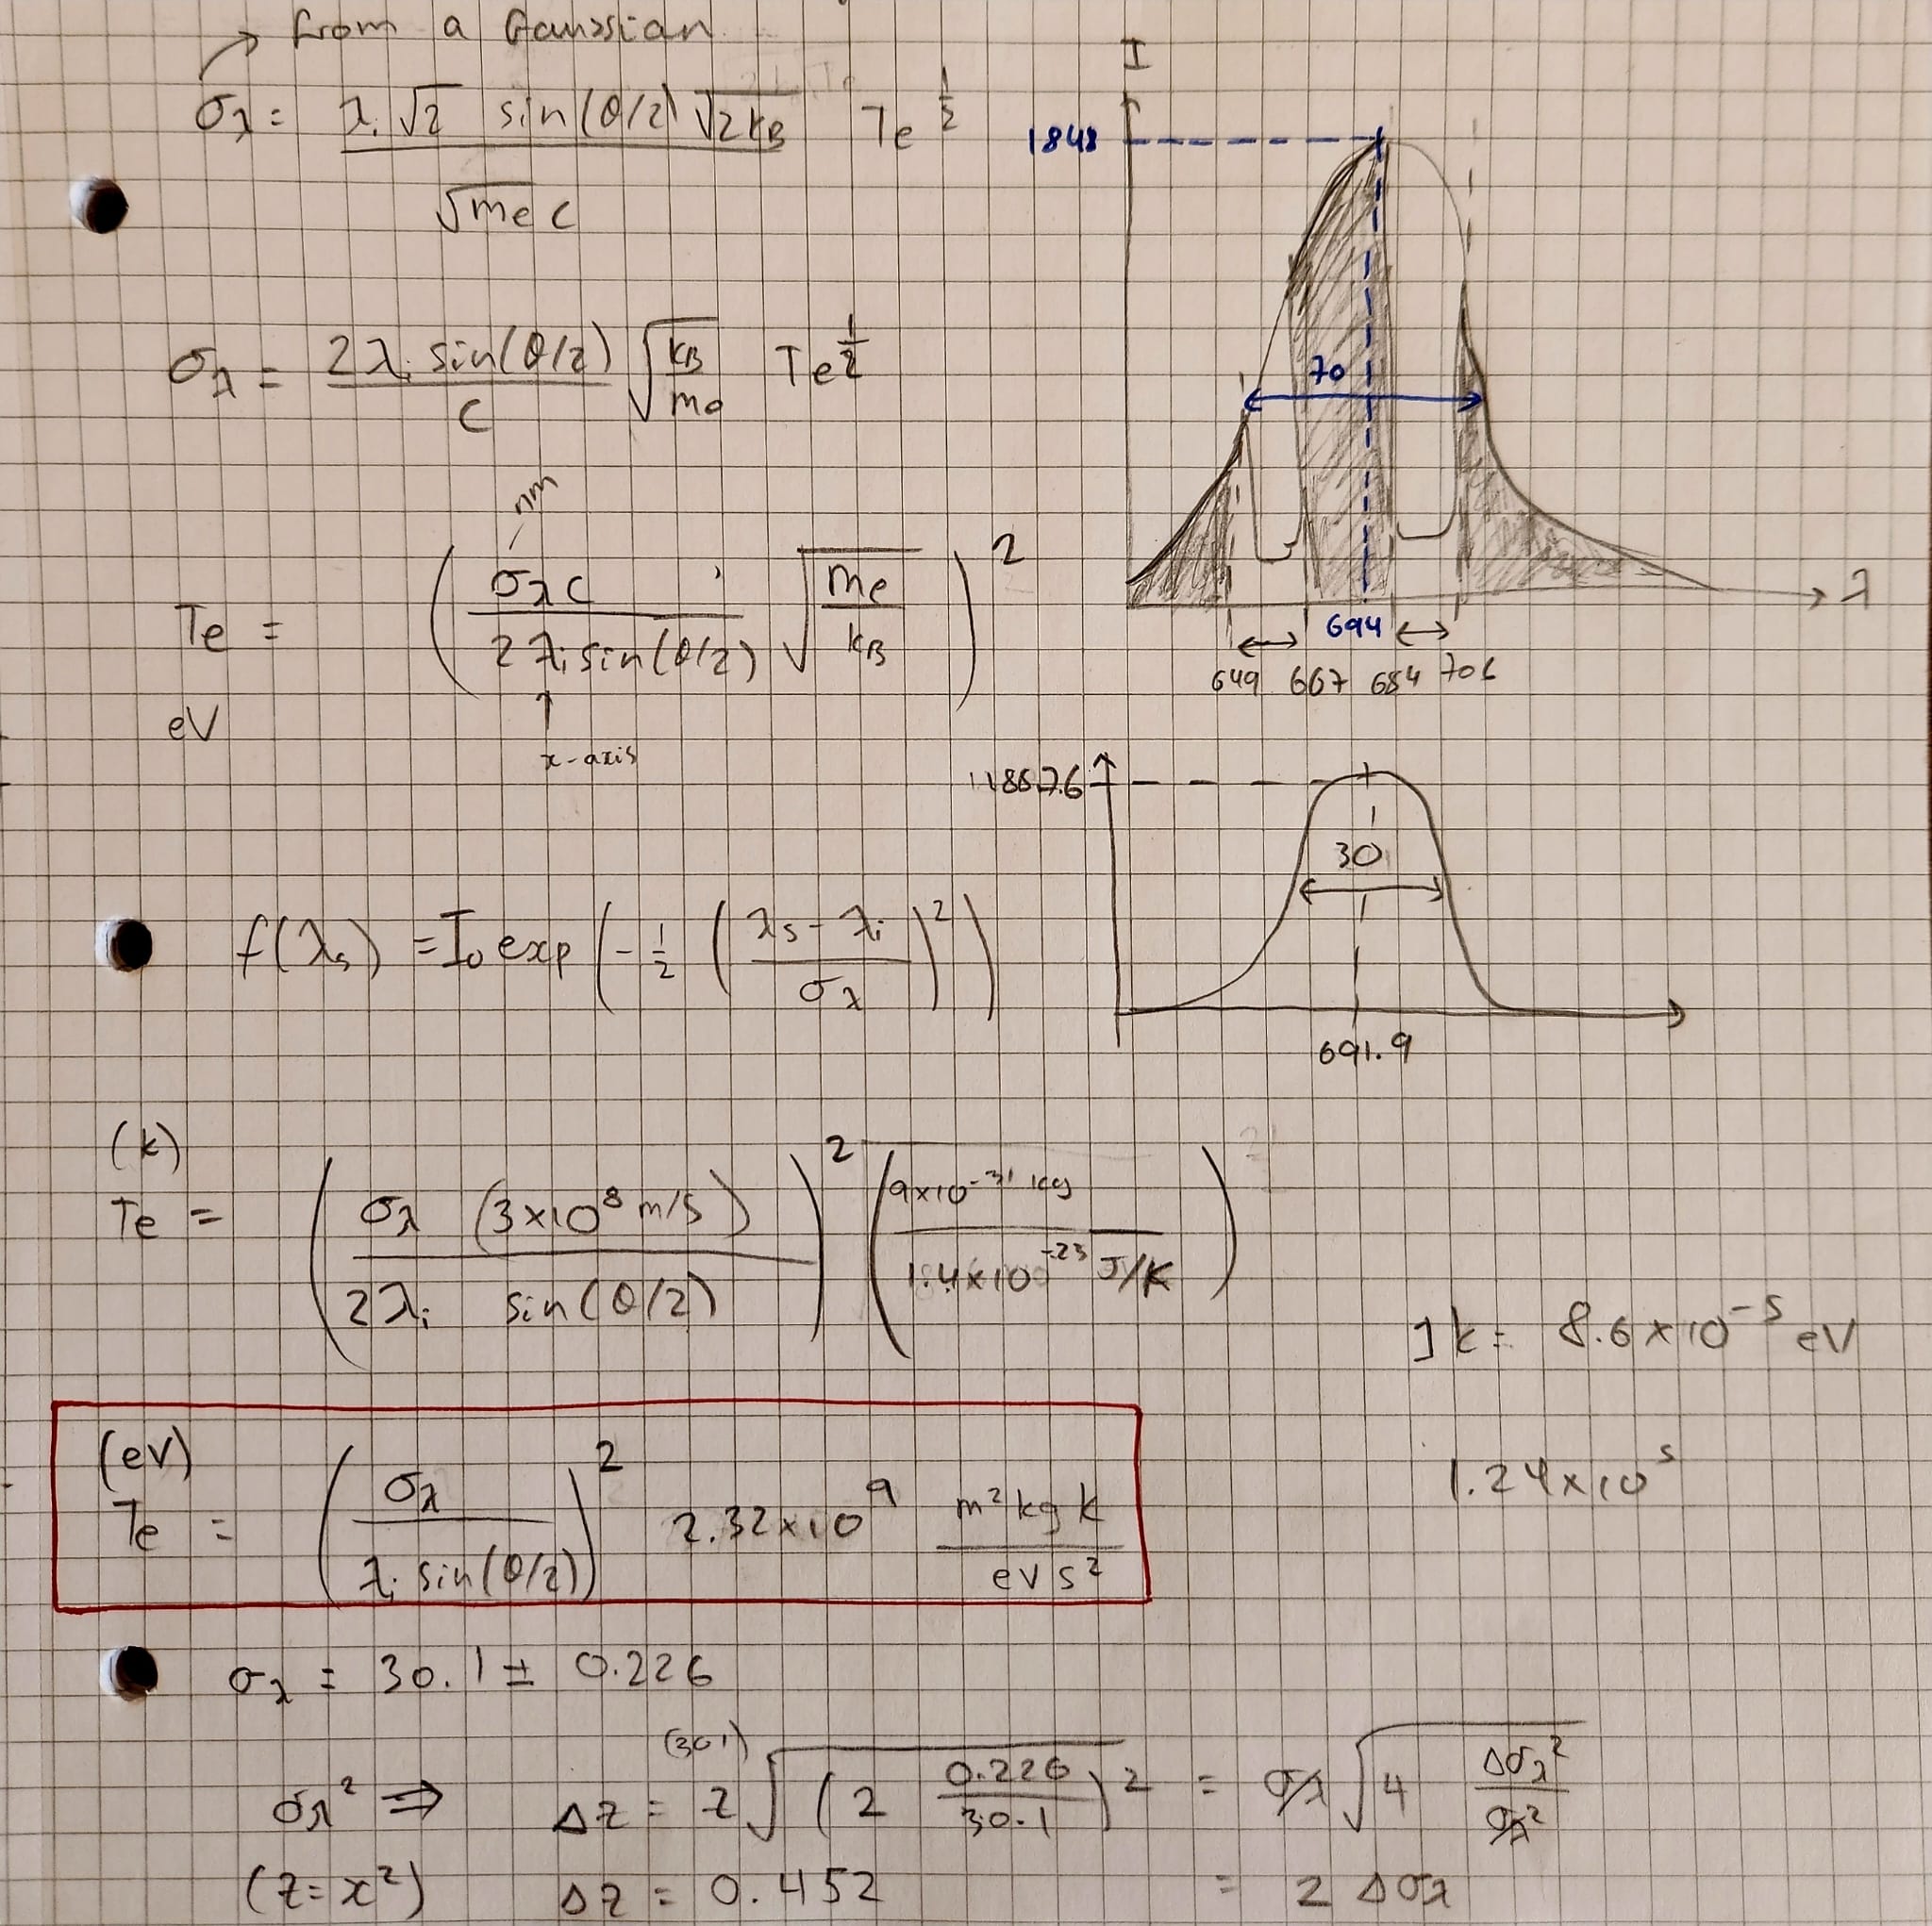 from a Gaussian
σλ = λi √2 sin(θ/2) √2kB / √me c Te^1/2
σλ = 2λi sin(θ/2) / c √(kB/me) Te^1/2
nm
Te = (σλ c / 2λi sin(θ/2) √(me/kB))^2
eV
x-axis
I
1848
70
694
λ
649 667 684 706
f(λs) = I0 exp(-1/2 ((λs - λi)/σλ)^2)
1887.6
30
691.9
(k)
Te = (σλ (3×10^8 m/s) / 2λi sin(θ/2))^2 (9×10^-31 kg / 1.4×10^-23 J/K)
1k = 8.6×10^-5 eV
(eV)
Te = (σλ / λi sin(θ/2))^2 2.32×10^9 m² kg k / eV s²
1.24×10^5
σλ = 30.1 ± 0.226
(30.1)
σλ² ⇒ Δz = z √(2 0.226/30.1)^2 = σλ √4 Δσλ²/σλ²
(z=x²) Δz = 0.452 = 2 Δσλ